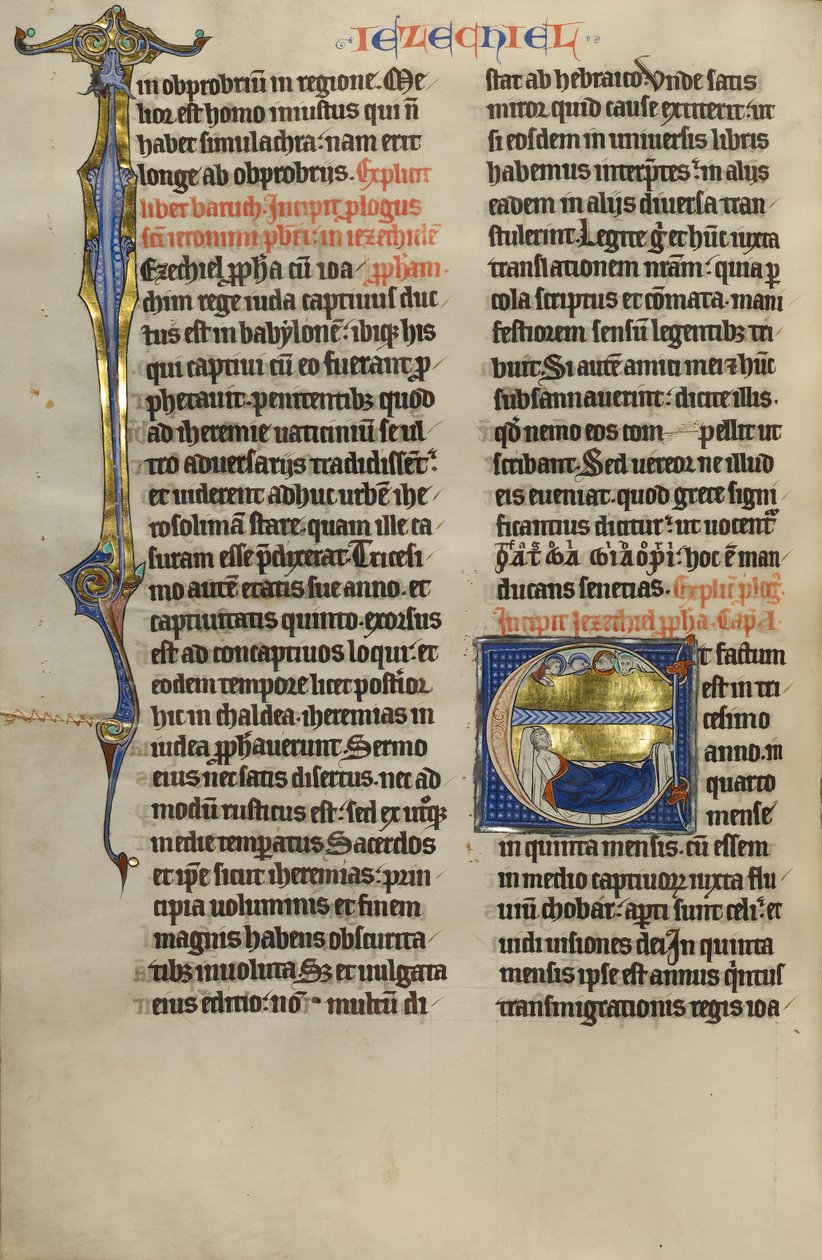 IEZECHIEL
in obprobriū in regione. Me
lior est homo iniustus qui ñ
habet simulachra: nam erit
longe ab obprobrijs. Explicit
liber baruch. Incipit plogus
sc̄i ieronimi pbr̄i: in iezechielē
Ezechiel ppħa cū ioa pphām.
chim rege iuda captiuus duc
tus est in babylonē: ibiqꝫ his
qui captiui cū eo fuerant p
phetauit. penitentibꝫ quod
ad iheremie uaticiniū se ul
tro aduersarijs tradidissēt:
et uiderent adhuc urbē ihe
rosolimā stare. quam ille ca
suram esse p̄dixerat. Tricesi
mo autē etatis sue anno. et
captiuitatis quinto. exorsus
est ad concaptiuos loqui. et
eodem tempore licet post̾ior
hic in chaldea. iheremias in
iudea ppħauerunt. Sermo
eius nec satis disertus. nec ad
modū rusticus est: sed ex utͦqꝫ
medie temꝑatus Sacerdos
et ip̄e sicut iheremias: prin
cipia uoluminis et finem
magnis habens obscurita
tibꝫ inuoluta Sꝫ et uulgata
eius editio: nō multū di
stat ab hebraico. Vnde satis
miror quid cause extiterit: ut
si eosdem in uniuersis libris
habemus interp̄tes: in alijs
eadem in alijs diuersa tran
stulerint. Legite g̾ et hūc iuxta
translationem nr̄am: quia ꝑ
cola scriptus et cōmata. mani
festiorem sensū legentibꝫ tri
buit. Si autē amici mei ⁊ hūc
subsannauerint: dicite illis.
qd̾ nemo eos com pellit ut
scribant. Sed uereor ne illud
eis eueniat. quod grece signi
ficantius dicitur: ut uocent̾
hoc ē man
ducans senecias. Explic̄ plog̾.
Incipit Iezechiel ppħa. Cap. I.
Et factum
est in tri
cesimo
anno. in
quarto
mense
in quinta mensis. cū essem
in medio captiuoꝝ iuxta flu
uiū chobar: aꝑti sunt celi: et
uidi uisiones dei. In quinta
mensis ipse est annus qͥntus
transmigrationis regis ioa